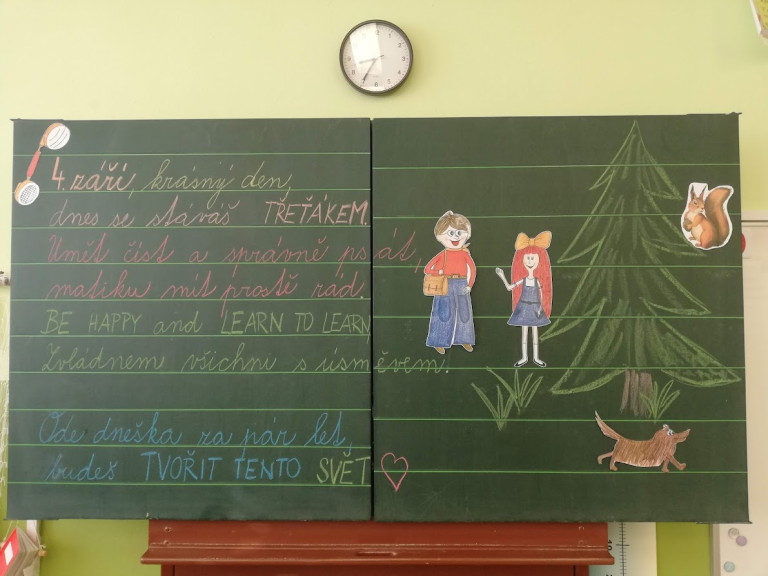 4. září, krásný den,
dnes se stáváš TŘEŤÁKEM.
Umět číst a správně psát,
matiku mít prostě rád.
BE HAPPY and LEARN TO LEARN
Zvládneme všichni s úsměvem.
Ode dneška za pár let,
budeš TVOŘIT TENTO SVĚT